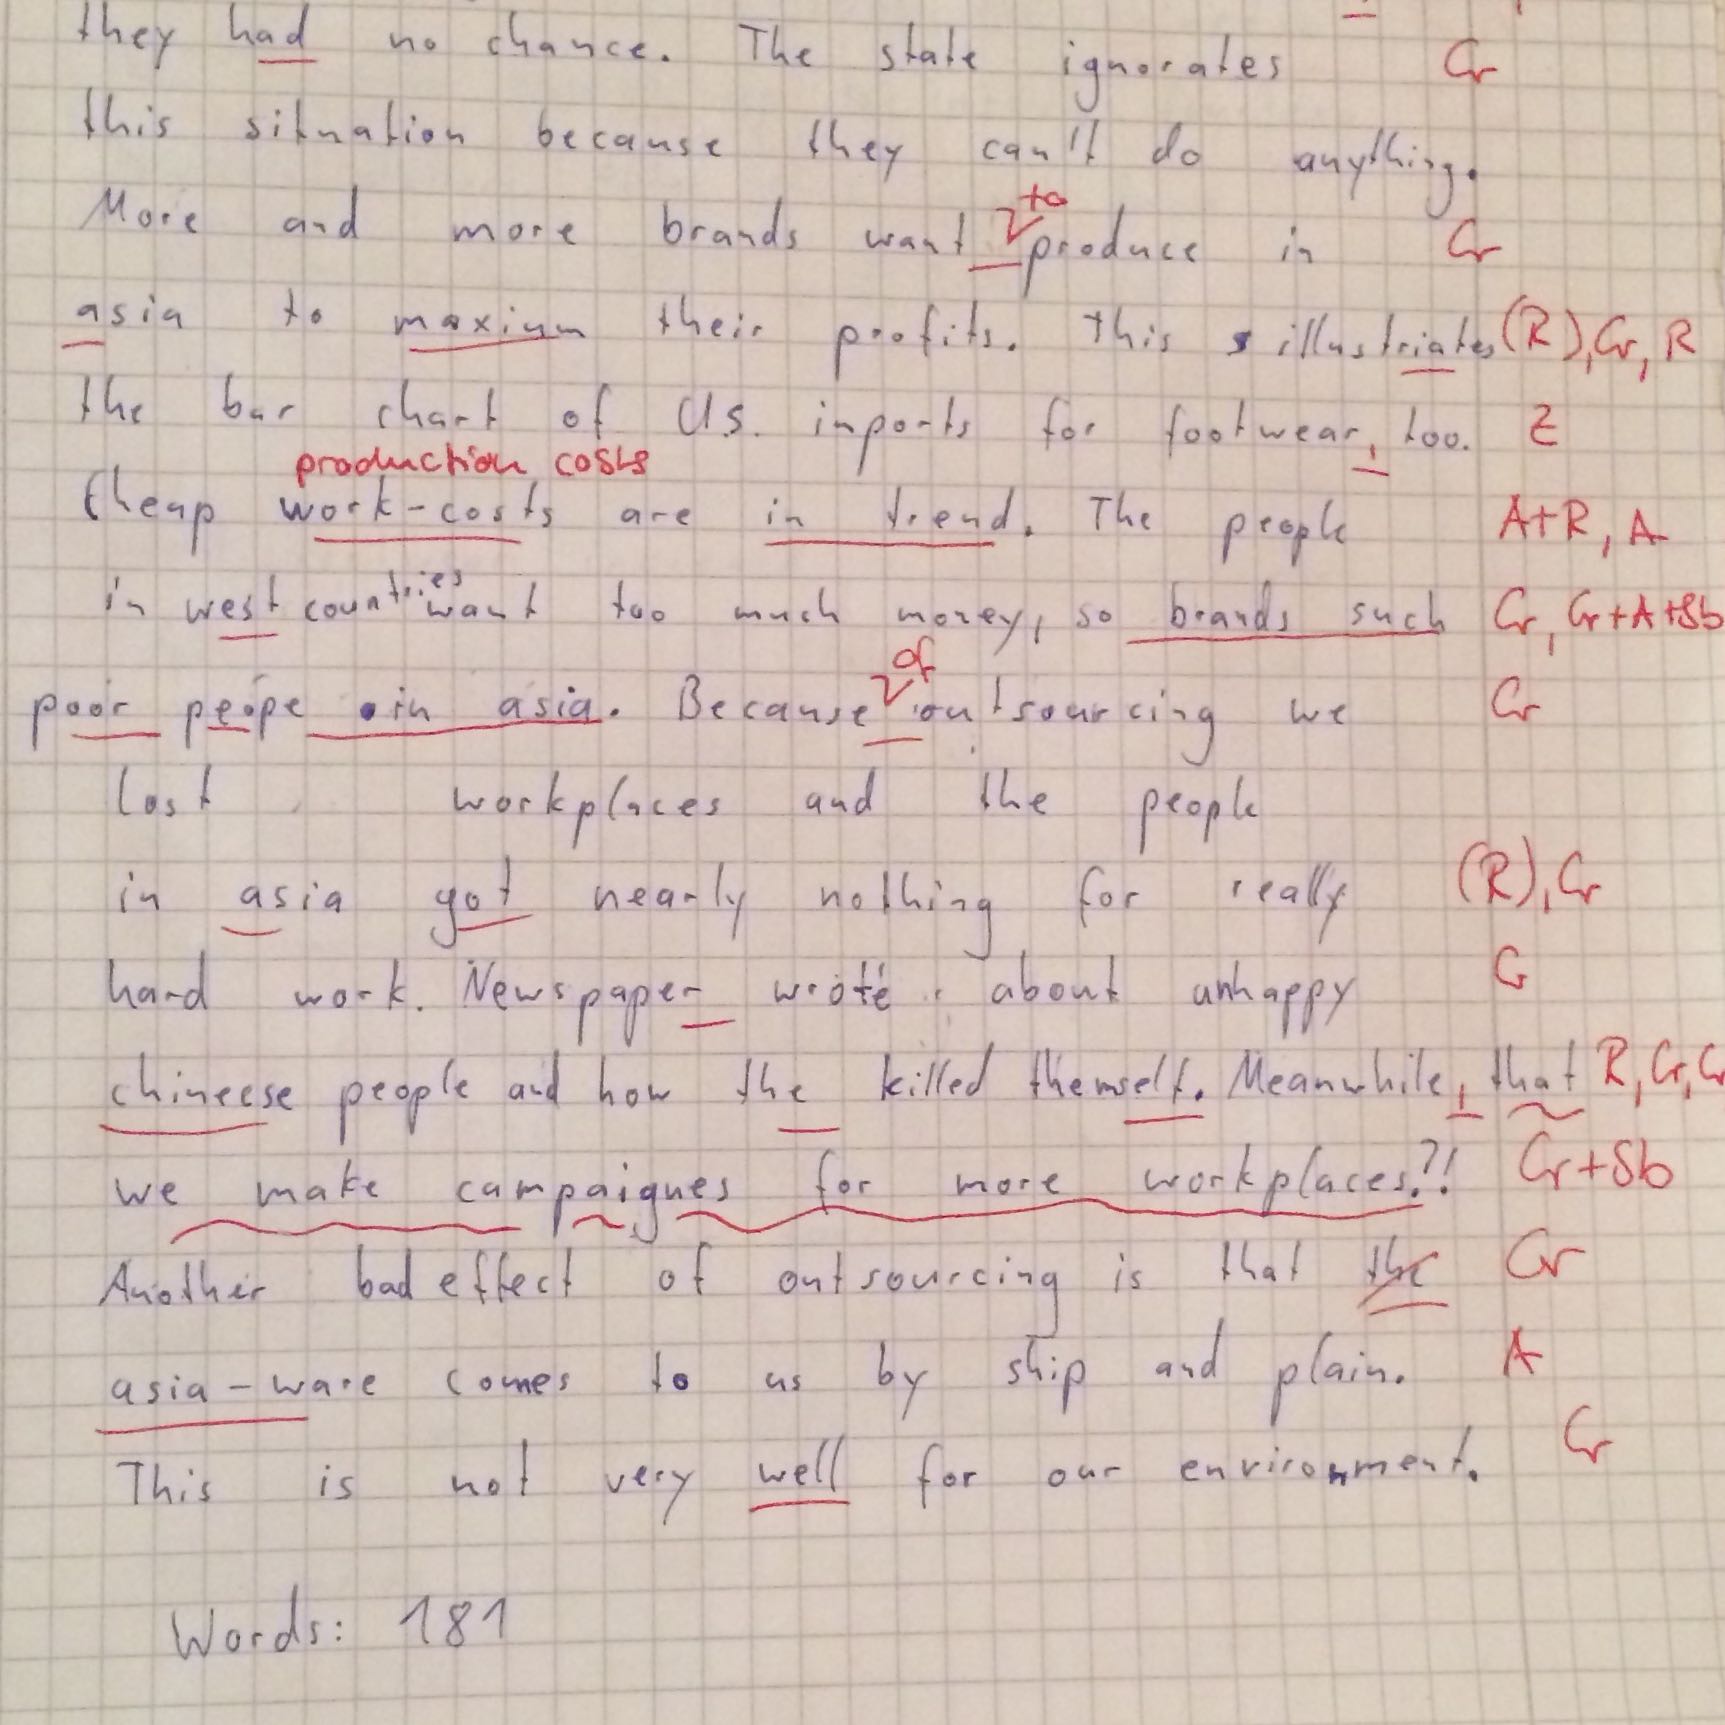 they had no chance. The state ignorates Gr
this situation because they can't do anything.
to
More and more brands want produce in Gr
asia to maxium their profits. This illustriates (R), Gr, R
the bar chart of U.S. inports for footwear, too. Z
production costs
Cheap work-costs are in trend. The people A+R, A
in west countries want too much money, so brands such Gr, Gr+A+Sb
of
poor peope in asia. Because outsourcing we Gr
lost workplaces and the people
in asia got nearly nothing for really (R), Gr
hard work. Newspaper wrote about unhappy G
chineese people and how the killed themself. Meanwhile, that R, Gr, Gr
we make campaignes for more workplaces?! Gr+Sb
Another bad effect of outsourcing is that the Gr
asia-ware comes to us by ship and plain. A
This is not very well for our environment. Gr
Words: 181